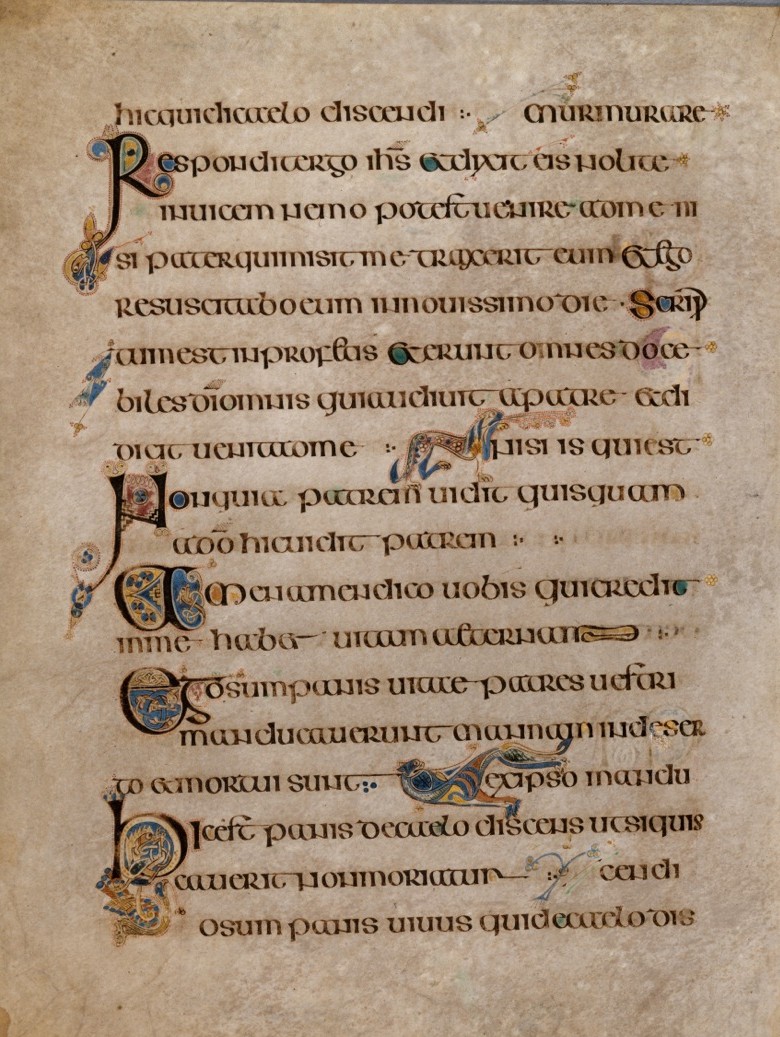 hicquidicaelo discendi :· murmurare
Responditergo ihs̄ etdixit eis nolite
inuicem nemo potestuenire adme ni
si paterquimisit me traxerit eum etego
resuscitaboeum innouissimo die · Scrip
tumest inprofetis eterunt omnes doce
biles dīomnis quiaudiuit apatre et di
dicit uenitadme :· nisi is quiest
Nonquia patrem uidit quisquam
adō hicuidit patrem :· :·
Amenamendico uobis quicredit
inme habet uitam aeternam
Egosumpanis uitae patres uestri
manducauerunt mannam indeser
to etmortui sunt :· exipso mandu
hicest panis decaelo discens utsiquis
cauerit nonmoriatur :· cendi
osum panis uiuus quidecaelo dis